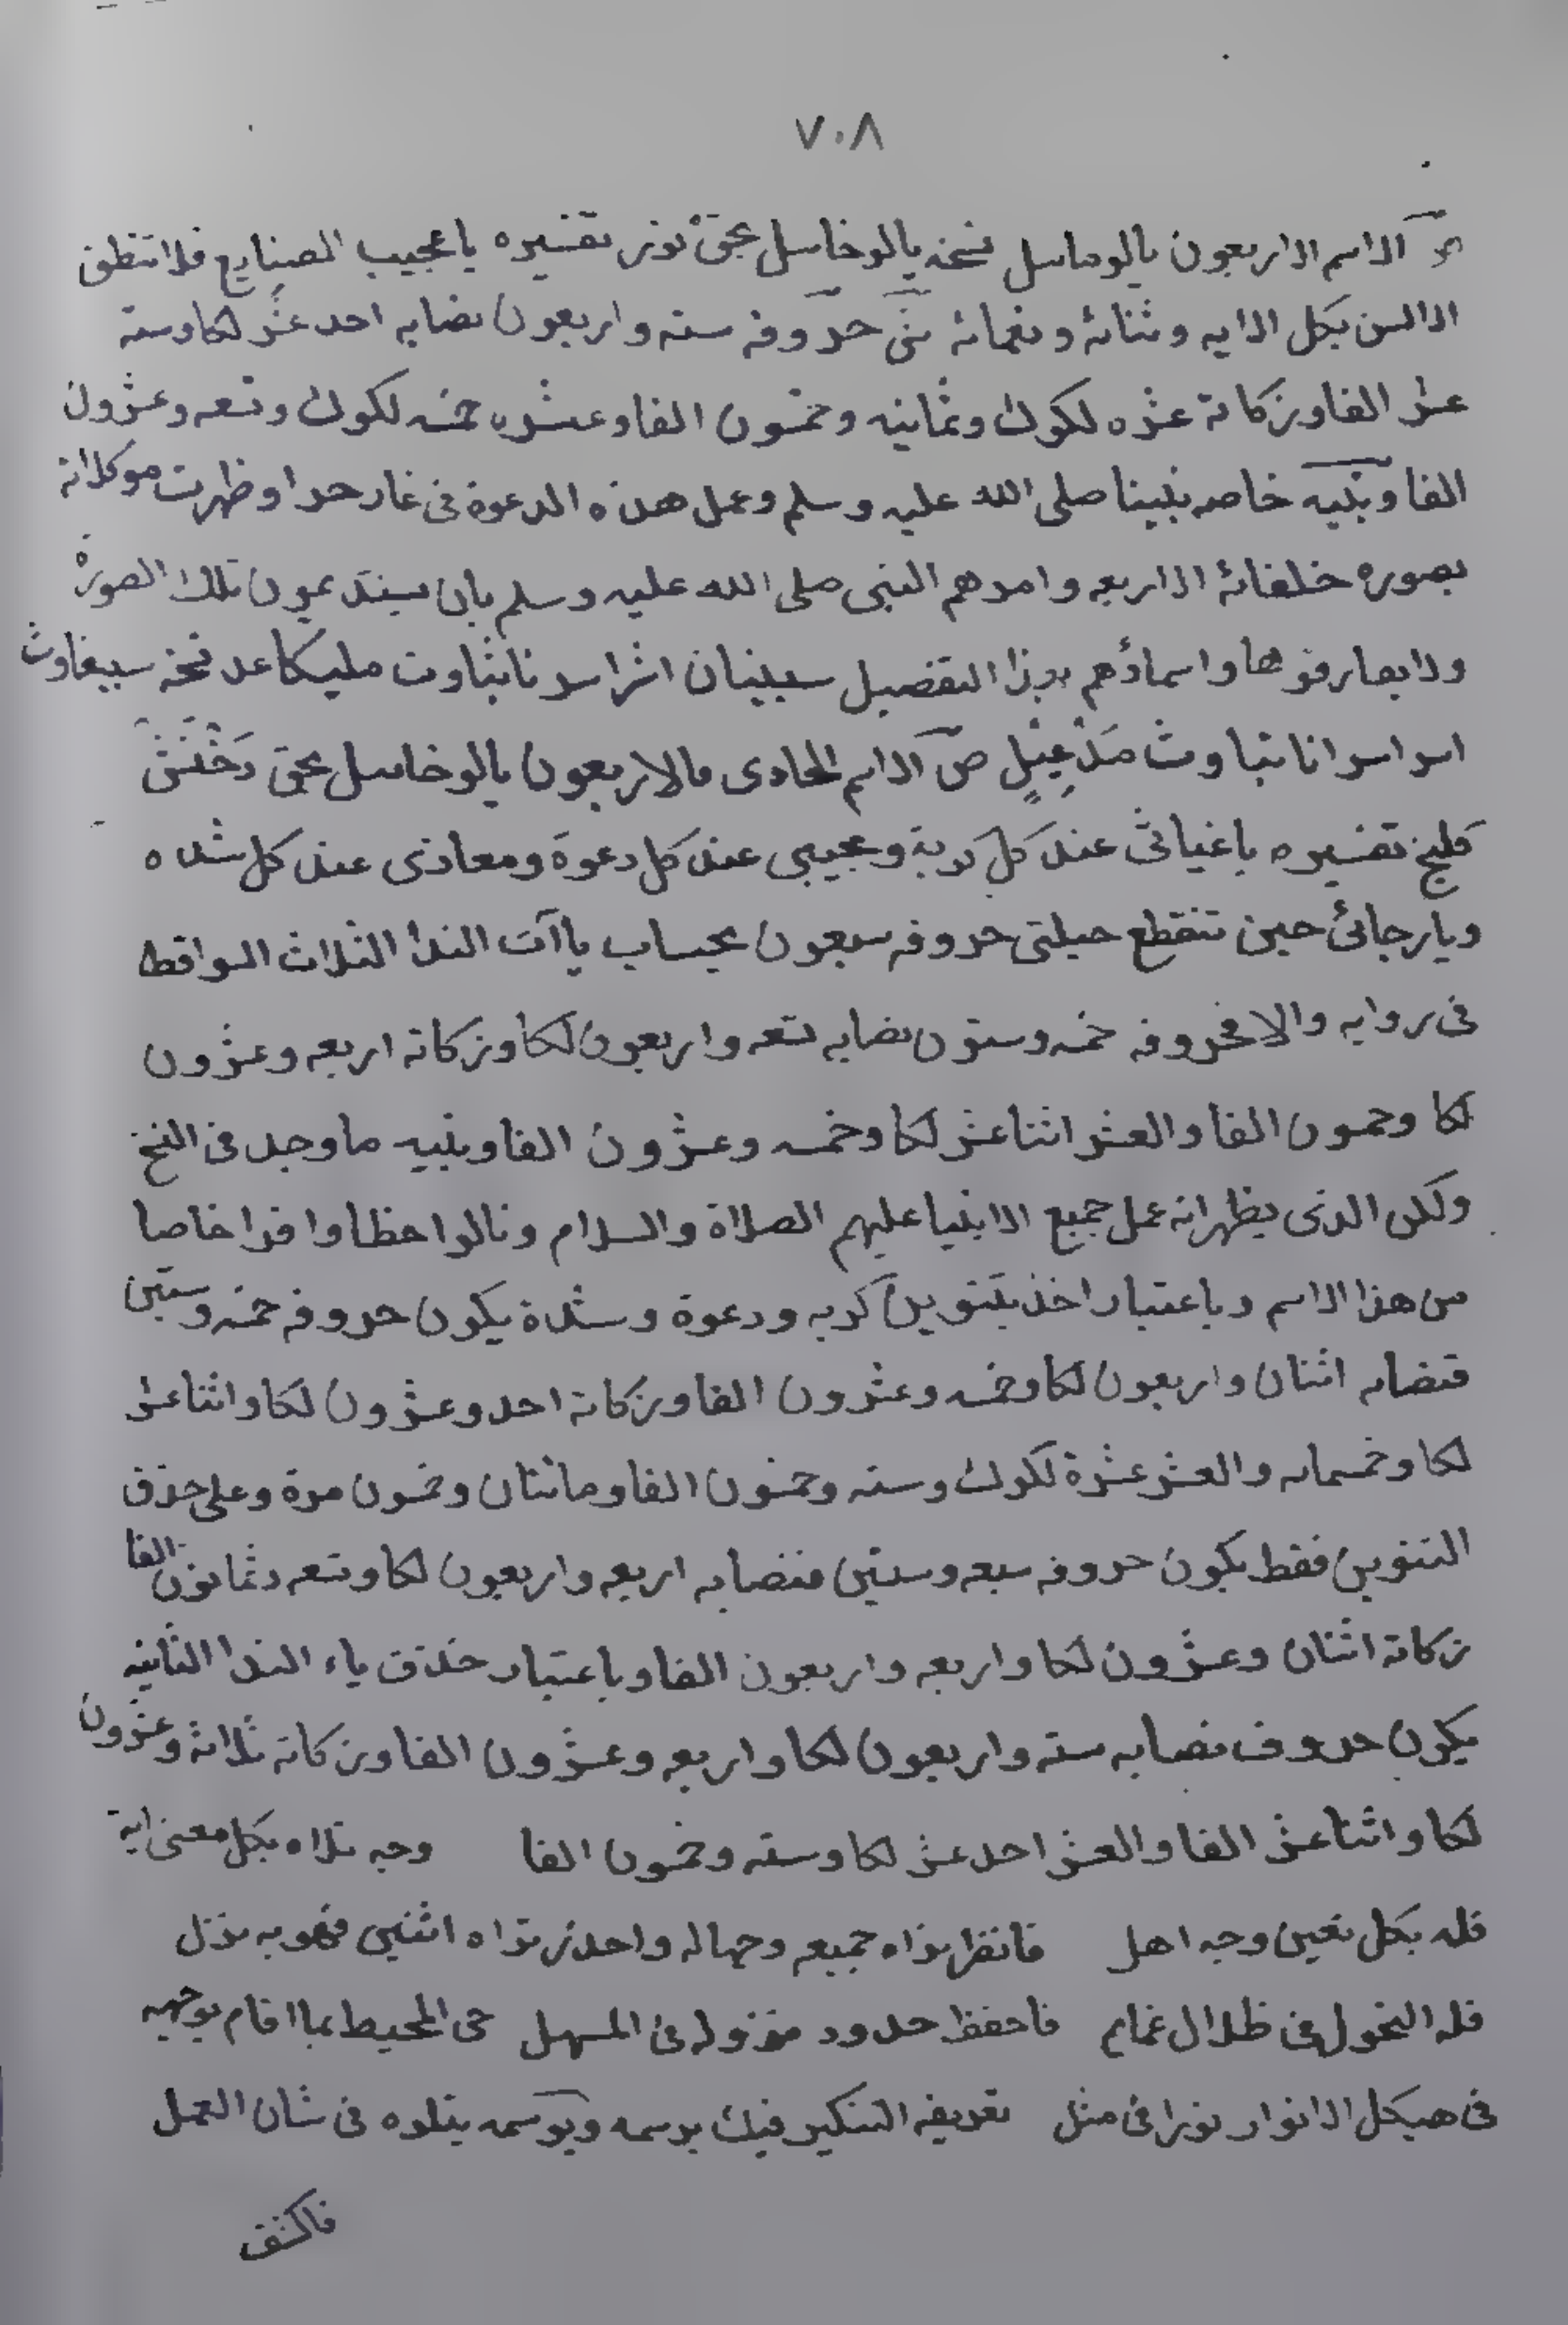 ٧٠٨
الاسم الاربعون يالوماسل نسخه يالوخاسل بحق نور تفسيره يا عجيب الصنايع فلا تنطق
الالسن بكل الايه وثنائه ونعمائه حروفه سته واربعون نصابه احد عشر لكا وسته
عشر الفا وزكاته عشره لكوك وثمانيه وخمسون الفا وعشره خمسه لكوك وتسعه وعشرون
الفا ونبيه خاصه نبينا صلى الله عليه وسلم وعمل هذه الدعوة فى غار حرا وظهرت موكلاته
بصوره خلفائه الاربعه وامرهم النبى صلى الله عليه وسلم بان يستدعون تلك الصورة
ولا يعارفوها واسماؤهم بهذا التفضيل مليكاعد نسخه سبيغاوث
اسواسوانا نتباوث ص الاسم الحادى والاربعون يالوخاسل بحق دخنش
كليخ تفسيره يا غياثى عند كل كربة ومجيبى عند كل دعوة ومعاذى عند كل شده
ويا رجائى حين تنقطع حيلتى حروفه سبعون بحساب ياآت الندا الثلاث السواقط
فى روايه والا فحروفه خمسه وستون نصابه تسعه واربعون لكا وزكاته اربعه وعشرون
لكا وخمسون الفا والعشر اثنا عشر لكا وخمسه وعشرون الفا ونبيه ما وجد فى النسخ
ولكن الذى يظهر انه عمل جميع الانبيا عليهم الصلاة والسلام ونالوا حظا وافرا خاصا
من هذا الاسم وباعتبار اخذ بتنوين كربه ودعوة وشدة يكون حروفه خمسه وستين
فنصابه اثنان واربعون لكا وخمسه وعشرون الفا وزكاته احد وعشرون لكا واثنا عشر
لكا وخمسمايه والعشر عشرة لكوك وسته وخمسون الفا ومائتان وخمسون مرة وعلى حذف
التنوين فقط يكون حروفه سبعه وستين فنصابه اربعه واربعون لكا وتسعه وثمانون الفا
زكاته اثنان وعشرون لكا واربعه واربعون الفا وباعتبار حذف ياء الندا الثانيه
يكون حروف نصابه سته واربعون لكا واربعه وعشرون الفا وزكاته ثلاثة وعشرون
لكا واثنا عشر الفا والعشر احد عشر لكا وسته وخمسون الفا وجه تلاه بكل معنى ايه
فله بكل تعين وجه اهل فانظر تراه جميعه وجماله واحذر تراه اثنين فهو به نزل
فله التحول فى ظلال غمايم فاحفظ حدود نزوله فى المسهل حى المحيط بما اقام بوجهه
فى هيكل الانوار نورا فى مثل تعريفه التنكير فيك برسمه وبوسمه يتلوه فى شان العمل
فاكشف